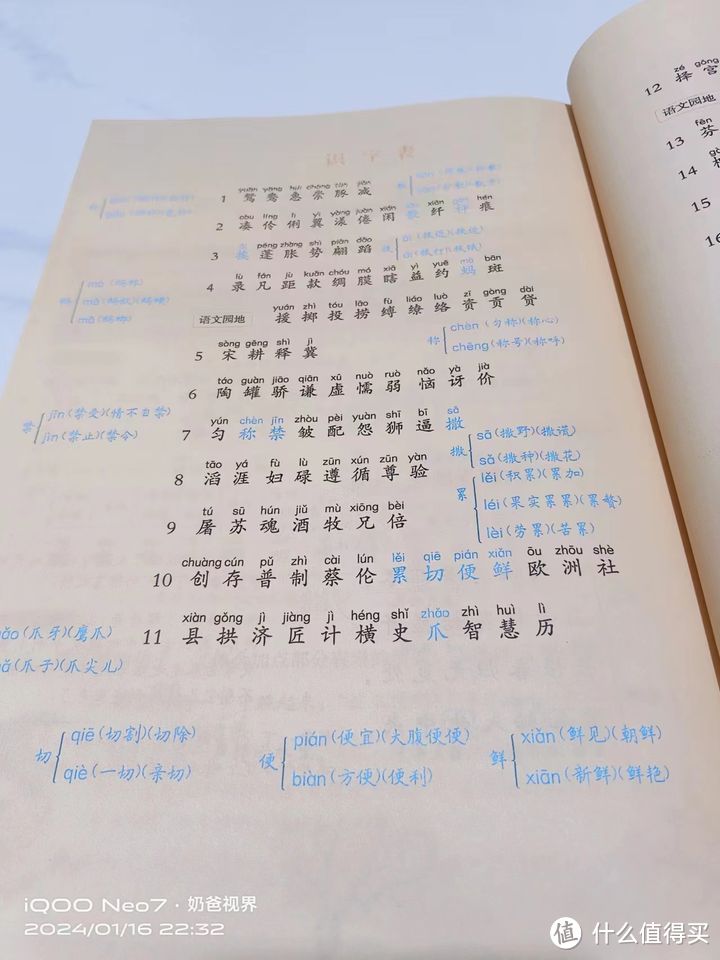 识字表
1 鸳鸯惠崇豚减
yuān yāng huì chóng tún jiǎn
còu líng lì yì yàng juàn xián xiān hén
2 凑伶俐翼漾倦闲 纤 痕
péng zhàng shì piān dǎo
3 挨蓬胀势翩蹈
lù fán jù kuǎn chóu mó xiā yì yuē mā bān
4 录凡距款绸膜瞎益约蚂斑
蚂
mǎ
mā
mà
yuán zhì tóu lāo fù liáo luò zī gòng dài
语文园地 援掷投捞缚缭络资贡贷
sòng gēng shì jì
5 宋耕释冀
称
chèn (匀称)(称心)
chēng (称号)(称呼)
táo guàn jiāo qiān xū nuò ruò nǎo yà jià
6 陶罐骄谦虚懦弱恼讶价
禁
jīn (禁受)(情不自禁)
jìn (禁止)(禁令)
yún chèn jīn zhòu pèi yuàn shī bī sā
7 匀称禁皱配怨狮逼撒
撒
sā (撒野)(撒谎)
sǎ (撒种)(撒花)
tāo yá fù lù zūn xún zūn yàn
8 滔涯妇碌遵循尊验
累
lěi (积累)(累加)
léi (果实累累)(累赘)
lèi (劳累)(苦累)
tú sū hún jiǔ mù xiōng bèi
9 屠苏魂酒牧兄倍
chuàng cún pǔ zhì cài lún lěi qiē pián xiǎn ōu zhōu shè
10 创存普制蔡伦累切便鲜欧洲社
xiàn gǒng jì jiàng jì héng shǐ zhǎo zhì huì lì
11 县拱济匠计横史爪智慧历
(爪牙)(鹰爪)
(爪子)(爪尖儿)
切
qiē (切割)(切除)
qiè (一切)(亲切)
便
pián (便宜)(大腹便便)
biàn (方便)(便利)
鲜
xiǎn (鲜见)(朝鲜)
xiān (新鲜)(鲜艳)
zé gōng
12 择宫
语文园地
fēn
13 芬
14
15
16
iQOO Neo7 · 奶爸视界
2024/01/16 22:32
值 什么值得买